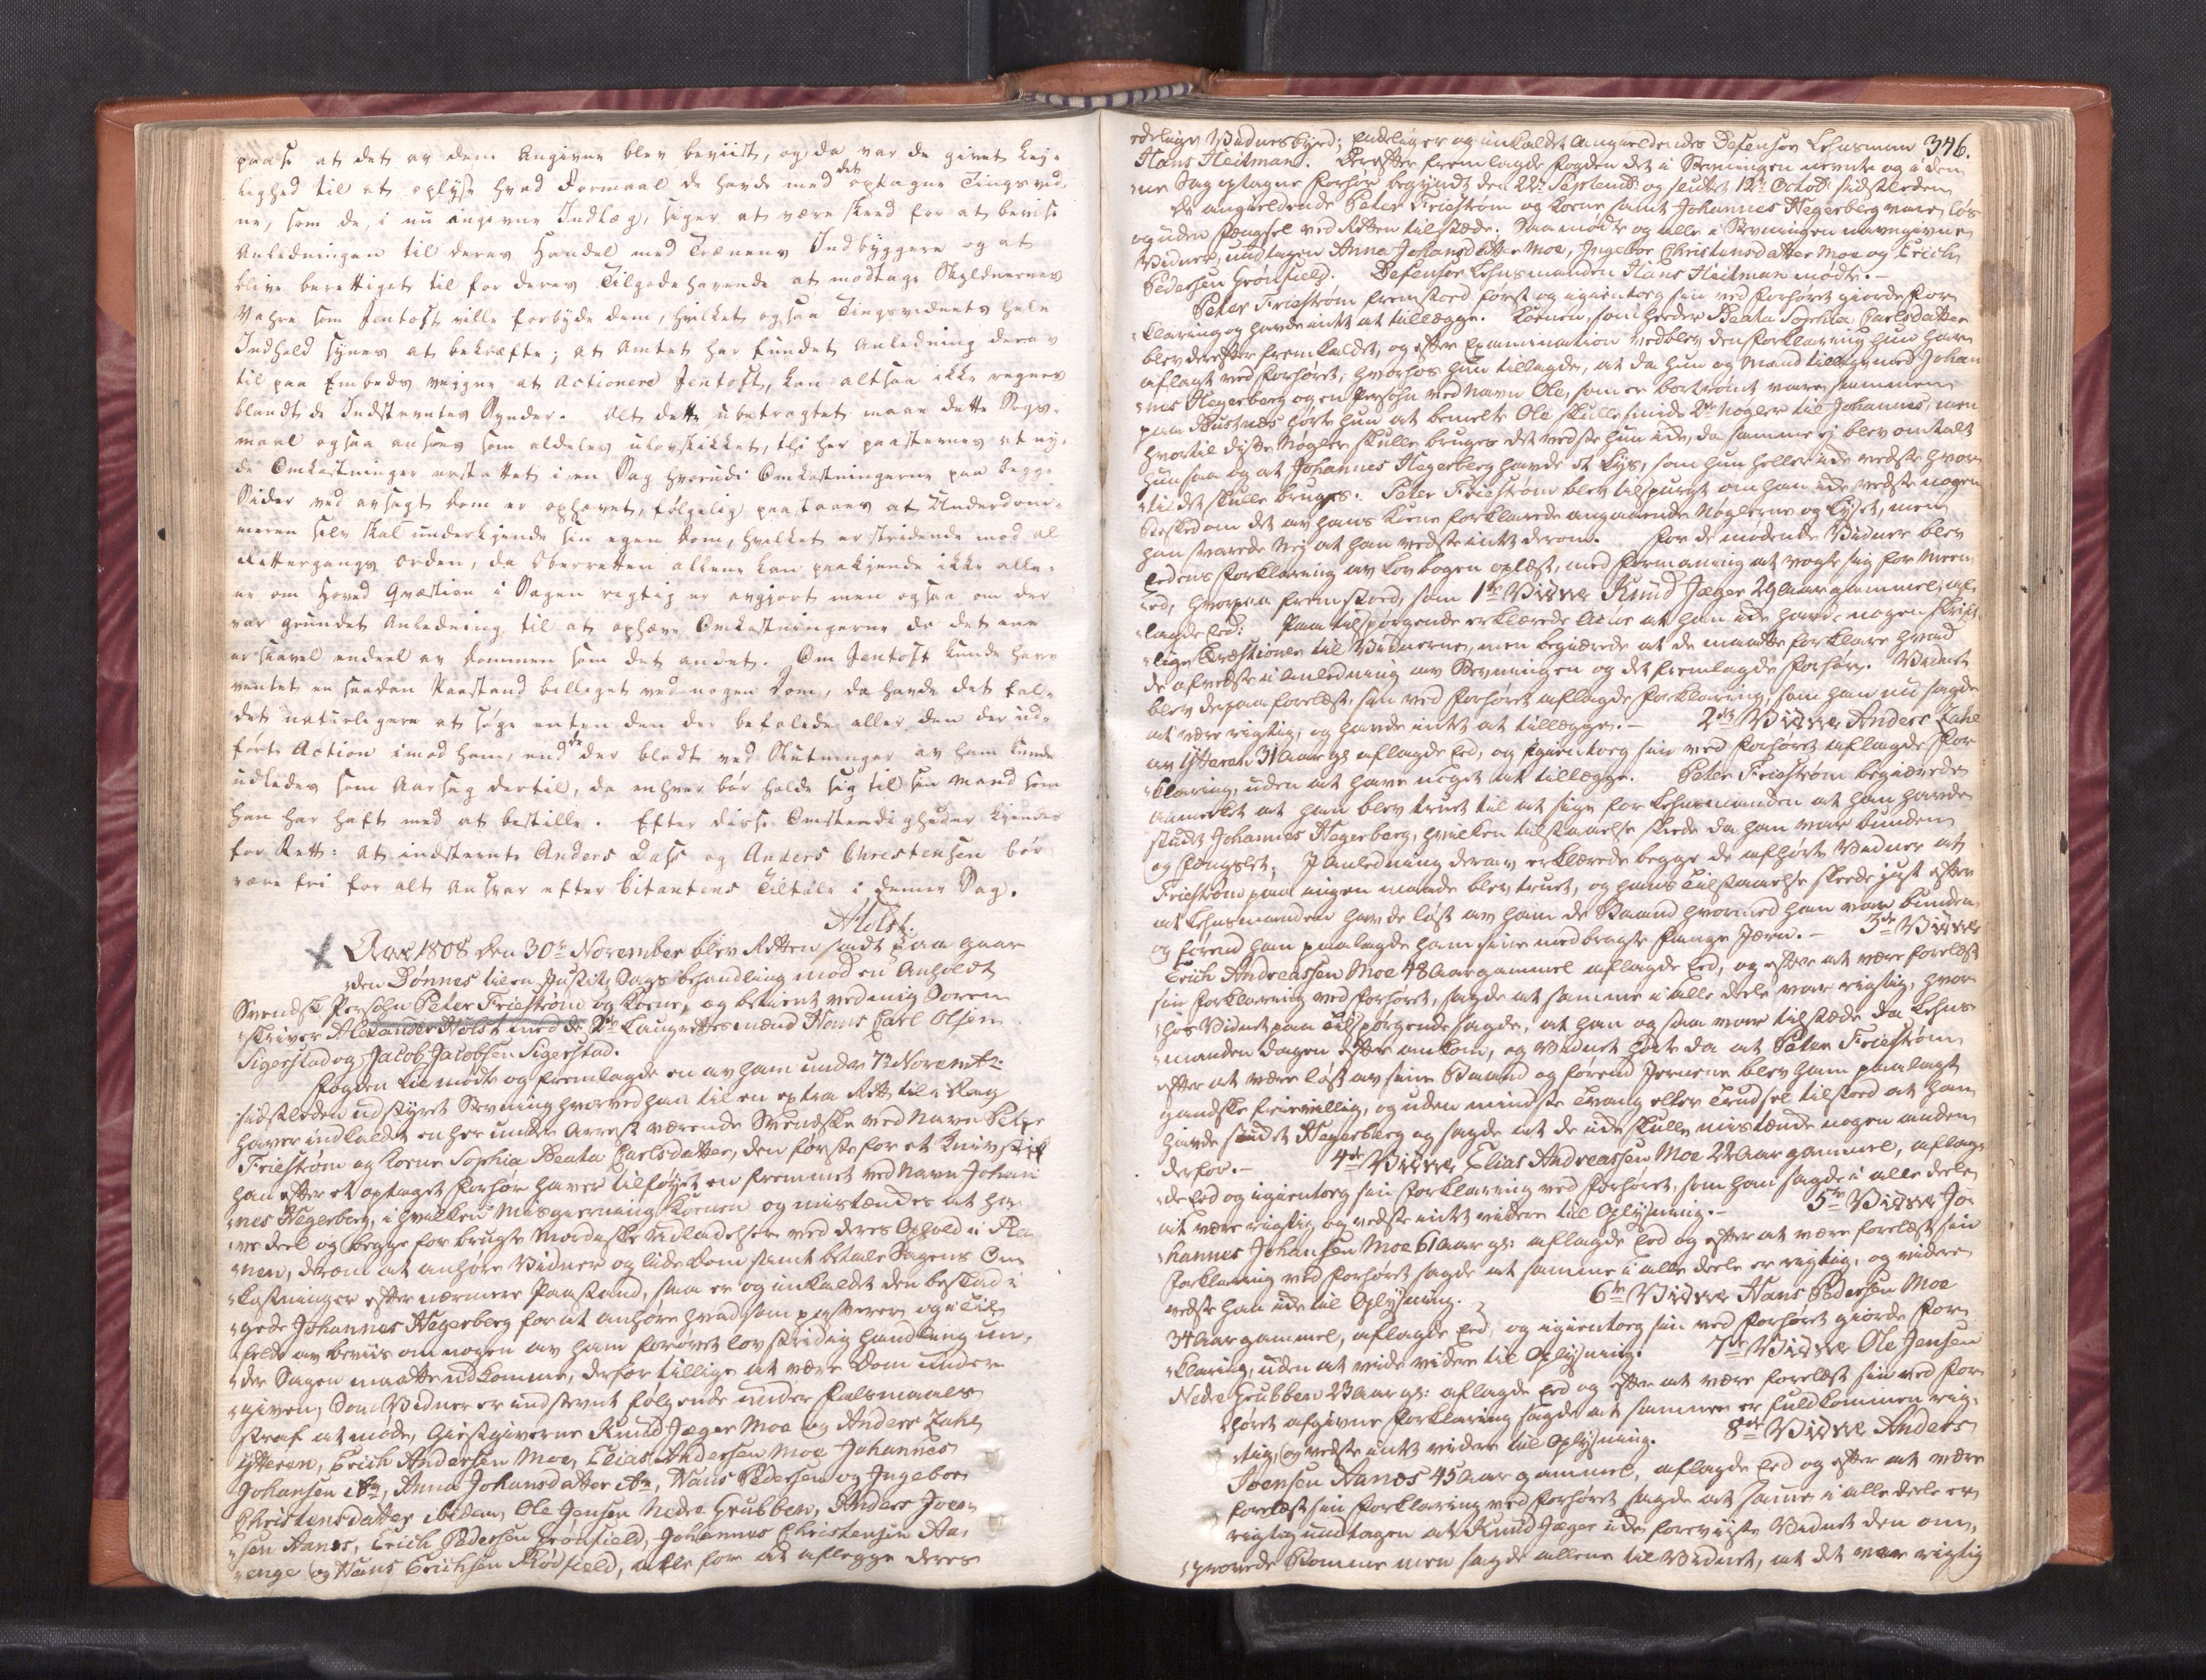 paase at det av dem Angivne blev beviist, og da var de givet Lej-
lighed til at oplyse hvad Formaal de havde med det optagne Tingsvid-
ne, som de, i nu ingivne Indlæg, siger at være skeed for at bevise
Anledningen til deres Handel med Trænens Indbyggere og at
blive berettiget til for deres Tilgodehavende at modtage Skyldnernes
Vahre som Jentoft ville forbyde dem, hvilket ogsaa Tingsvidnets hele
Indhold synes at bekræfte; at Amtet har fundet Anledning derav
til paa Embeds veigne at Actionere Jentoft, kan altsaa ikke regnes
blandt de Indstevntes Synder. Alt dette ubetragtet maae dette Søgs-
maal ogsaa ansees som aldeles ulovskikket, thi her paastevnes at ny-
de Omkostninger erstattet i en Sag hvorudi Omkostningerne paa begge
Sider ved avsagt Dom er ophævet, følgelig paastaaes at Underdom-
meren selv skal underkjende sin egen Dom, hvilket er stridende mod al
Rettergangs Orden, da Oberretten allene kan paakjende ikke alle-
ne om Hoved Qvæstion i Sagen rigtig er avgjort men ogsaa om der
var grundet Anledning til at ophæve Omkostningerne da det ene
er saavel endeel av Dommen som det andet. Om Jentoft kunde have
ventet en saadan Paastand billiget ved nogen Dom, da havde det fal-
det naturligere at søge enten den der befalede eller den der ud-
førte Action imod ham, end de der blodt ved Slutninger av ham kunde
udledes som Aarsag dertil, da enhver bør holde sig til sin Mand som
han har haft med at bestille. Efter disse Omstændigheder kjendes
for Rett: At indstevnte Anders Dass og Anders Christensen bør
være fri for alt Ansvar efter Citantens Tiltale i denne Sag.
AHolst.
Aar 1808 den 30te November blev Retten sadt paa Gaar-
den Dønnes til en Justits Sags behandling mod en Anholdt
Svendsk Persohn Peter Friestrøm og Kone, og betient ved mig Soren-
skriver Alexander Holst med de 2de Laugrettesmænd Hans Carl Olsen
Sigerstad og Jacob Jacobsen Sigerstad.
Fogden Lie mødte og fremlagde en av ham under 7de Novembr
sidstleden udstyret Stevning hvorved han til en extra Rett til i Dag
haver indkaldet en her under Arrest værende Svendske ved Navn Peter
Friestrøm og Kone Sophia Beata Carlsdatter, den første for et Knivstik
han efter et optaget Forhør haver tilføyet en fremmet ved Navn Johan-
nes Hegerberg, i hvilken Misgierning Konen og mistænkes at ha-
ve deel og begge for brugte Mordiske Udladelser ved deres Ophold i Ra-
nen, derom at anhøre Vidner og lide Dom samt betale Sagens Om-
kostninger efter nærmere Paastand, saa er og inkaldt den beskad-
gede Johannes Hegerberg for at anhøre hvad som passerer og i Til-
felde av beviis om nogen av ham forøvet lovstridig handling un-
der Sagen maatte udkomme, derfor tillige at være Dom under-
given, Som Vidner er indstevnt følgende under Falsmaals
straf at møde, Giestgiverne Knud Jæger Moe og Anders Zahl
Ytteren, Erich Andersen Moe, Elias Andersen Moe Johannes
Johansen ibm, Anna Johansdatter ibm, Hans Pedersen og Ingebor
Christensdatter ibidem, Ole Jensen Nedre Grubben, Anders Joen-
sen Aanes, Erich Pedersen Grønfield, Johannes Christensen Aa-
enge og Hans Erichsen Rødfield, alle for at aflegge deres
346.
edelige Vidnesbyrd; endeligen og inkaldet Angieldendes Defensor Lehnsman
Hans Heitman. Derefter fremlagde Fogden det i Stevningen nevnte og i den-
ne Sag optagne Forhør begyndt den 22de Septembr og sluttet 12te Octobr sidstleden
De angieldende Peter Friestrøm og Kone samt Johannes Hegerberg vare løs
og uden Fængsel ved Retten tilstæde. Saa mødte og alle i Stevningen navngivne
Vidner, undtagen Anna Johansdatter Moe, Ingebor Christensdatter Moe og Erich
Pedersen Grønfield. Defensor Lehnsmanden Hans Heitman mødte.-
Peter Friestrøm fremstoed først og igientog sin ved Forhøret giorde For-
klaring og havde intet at tillægge. Konen, som heeder Beata Sophia Carlsdatter
blev derefter fremkaldet, og efter Examination vedblev den Forklaring hun har
aflagt ved Forhøret; hvorhos hun tillagde, at da hun og Mand tilligemed Johan-
nes Hegerberg og en Persohn ved Navn Ole, som er bortrømt vare sammen
paa Hustnæs hørte hun at bemelte Ole skulle smide 2de Nøgler til Johannes, men
hvortil disse Nøgler skulle bruges det vedste hun icke, da samme ej blev omtalt
hun saa og at Johannes Hegerberg havde et Lys, som hun heller icke vedste hvor-
til det skulle bruges. Peter Friestrøm blev tilspurgt om han icke vedste nogen
Beskeed om det av hans Kone forklarede angaaende Nøglerne og Lyset, men
han svarede Nej at han vedste intet derom. For de mødende Vidner blev
Eedens Forklaring av Lovbogen oplæst, med Formaning at vogte sig for Meen-
eed, hvorpaa fremstoed, som 1te Vidne Knud Jæger 29 Aar gammel, af-
lagde Eed: Paa tilspørgende erklærede Actor at han icke havde nogen skrift-
lige Qvæstioner til Vidnerne, men begiærede at de maatte forklare hvad
de afvedste i Anledning av Stevningen og det fremlagde Forhør. Vidnet
blev derpaa forelæst sin ved Forhøret aflagde Forklaring, som han nu sagde
at være rigtig, og havde intet at tillægge.- 2det Vidne Anders Zahl
av Ytteren 31 Aar gl: aflagde Eed, og igientog sin ved Forhøret aflagde For-
klaring, uden at have noget at tillægge. Peter Friestrøm begiærede
anmerket at han blev truet til at sige for Lehnsmanden at han havde
stukt Johannes Hegerberg, hvilken tilstaaelse skede da han var bunden
og fængslet; I Anledning derav erklærede begge de afhørte Vidner at
Friestrøm paa ingen maade blev truet, og hans Tilstaaelse skeede just efter
at Lehnsmanden havde løst av ham de Baand hvormed han var bunden
og førend han paalagde ham sine medbragte Fange Jærn.- 3de Vidne
Erich Andreassen Moe 48 Aar gammel aflagde Eed, og efter at være forelæst
sin Forklaring ved Forhøret, sagde at samme i alle deele var rigtig, hvor-
hos Vidnet paa Tilspørgende sagde, at han og saa var tilstæde da Lehns-
manden Dagen efter ankom, og Vidnet hørte da at Peter Friestrøm
efter at være løst av sine Baand og førend Jernene blev ham paalagt
gandske frievillig, og uden mindste Tvang eller Trudsel tilstoed at han
havde stukt Hegerberg og sagde at de icke skulle mistænke nogen anden
derfor.- 4de Vidne Elias Andreassen Moe 22 Aar gammel, aflag-
de Eed og igientog sin Forklaring ved Forhøret, som han sagde i alle deele
at være rigtig og vedste intet videre til Oplysning.- 5te Vidne Jo-
hannes Johansen Moe 61 Aar gl: aflagde Eed og efter at være forelæst sin
Forklaring ved Forhøret sagde at samme i alle deele er rigtig, og videre
vedste han icke til Oplysning. 6te Vidne Hans Pedersen Moe
34 Aar gammel, aflagde Eed, og igientog sin ved Forhøret giorde For-
klaring, uden at vide videre til Oplysning. 7de Vidne Ole Jensen
Nedre Grubben 23 Aar gl: aflagde Eed og efter at være forelæst sin ved For-
høret afgivne Forklaring sagde at samme er fuldkommen rig-
tig, og vedste intet videre til Oplysning. 8de Vidne Anders
Joensen Aanæs 45 Aar gammel, aflagde Eed og efter at være
forelæst sin Forklaring ved Forhøret sagde at samme i alle deele er
rigtig undtagen at Knud Jæger icke foreviiste Vidnet den om-
qvæstionerede men sagde allene til Vidnet, at det var rigtig